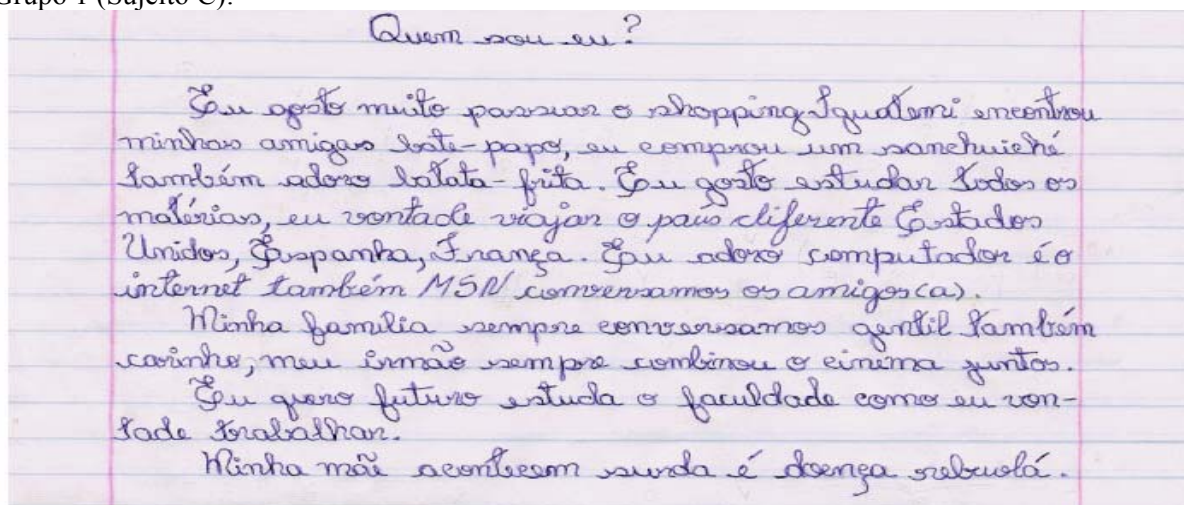 Grupo 1 (Sujeito C):
Quem sou eu?
Eu gosto muito passear o shopping Iguatemi encontrou
minhas amigas bate-papo, eu comprou um sanchuiché
também adoro batata-frita. Eu gosto estudar todos os
matérias, eu vontade viajar o país diferente Estados
Unidos, Espanha, França. Eu adoro computador é o
internet também MSN conversamos os amigos(a).
Minha família sempre conversamos gentil também
carinho, meu irmão sempre combinou o cinema juntos.
Eu quero futuro estuda o faculdade como eu von-
tade trabalhar.
Minha mãe acontecem surda é doença rebuolá.